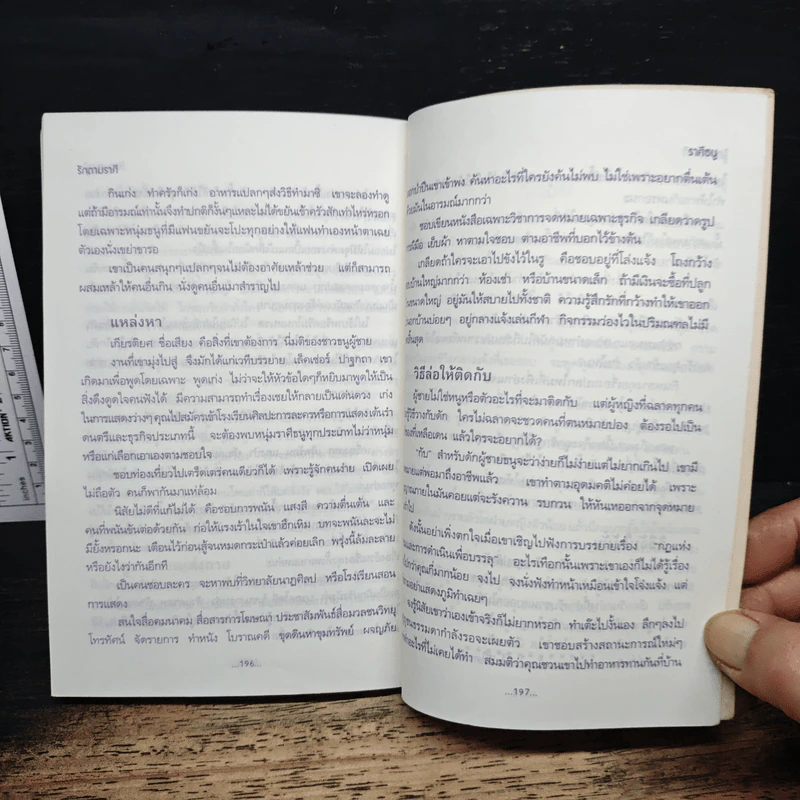 รักตามราศี
กินเก่ง ทำครัวก็เก่ง อาหารแปลกๆส่งวิธีทำมาซิ เขาจะลองทำดู
แต่ถ้ามีอารมณ์เท่านั้นจึงทำปกติก็งั้นๆแหละไม่ได้ขยันเข้าครัวสักเท่าไหร่หรอก
โดยเฉพาะหนุ่มธนูที่มีแฟนขยันจะโปะทุกอย่างให้แฟนทำเองหน้าตาเฉย
ตัวเองนั่งเขย่าขารอ
เขาเป็นคนสนุกๆแปลกๆจนไม่ต้องอาศัยเหล้าช่วย แต่ก็สามารถ
ผสมเหล้าให้คนอื่นกิน นั่งดูคนอื่นเมาสำราญไป
แหล่งหา
เกียรติยศ ชื่อเสียง คือสิ่งที่เขาต้องการ นี่มติของชาวธนูผู้ชาย
งานที่เขามุ่งไปสู่ จึงมักได้แก่เวทีบรรยาย เล็คเช่อร์ ปาฐกถา เขา
เกิดมาเพื่อพูดโดยเฉพาะ พูดเก่ง ไม่ว่าจะให้หัวข้อใดๆก็หยิบมาพูดให้เป็น
สิ่งดึงดูดใจคนฟังได้ มีความสามารถทำเรื่องเชยให้กลายเป็นเด่นดวง เก่ง
ในการแสดงว่างๆคุณไปสมัครเข้าโรงเรียนศิลปะการละครหรือการแสดงเต้นรำ
ดนตรีและธุรกิจประเภทนี้ จะต้องพบหนุ่มราศีธนูทุกประเภทไม่ว่าหนุ่ม
หรือแก่เลือกเอาเองตามชอบใจ
ชอบท่องเที่ยวไปเตร็ดเตร่คนเดียวก็ได้ เพราะรู้จักคนง่าย เปิดเผย
ไม่ถือตัว คนก็พากันมาแห่ล้อม
นิสัยไม่ดีที่แก้ไม่ได้ คือชอบการพนัน แสงสี ความตื่นเต้น และ
คนที่พนันขันต่อด้วยกัน ก่อให้แรงเร้าในใจเขาฮึกเหิม บทจะพนันละจะไม่
มียั้งหรอกนะ เตือนไว้ก่อนสู้จนหมดกระเป๋าแล้วค่อยเลิก พรุ่งนี้ล้มละลาย
หรือยังไงว่ากันอีกที
เป็นคนชอบละคร จะหาพบที่วิทยาลัยนาฏศิลป หรือโรงเรียนสอน
การแสดง
สนใจสื่อคมนาคม สื่อสารการโฆษณา ประชาสัมพันธ์สื่อมวลชนวิทยุ
โทรทัศน์ จัดรายการ ทำหนัง โบราณคดี ขุดดินหาขุมทรัพย์ ผจญภัย
...196...
ราศีธนู
เข้าพง ค้นหาอะไรที่ใครยังค้นไม่พบ ไม่ใช่เพราะอยากตื่นเต้น
มันในอารมณ์มากกว่า
ชอบเขียนหนังสือเฉพาะวิชาการจดหมายเฉพาะธุรกิจ เกลียดว่าครูป
เย็บผ้า หาตามใจชอบ ตามอาชีพที่บอกไว้ข้างต้น
เกลียดถ้าใครจะเอาไปขังไว้ในรู คือชอบอยู่ที่โล่งแจ้ง โถงกว้าง
บ้านใหญ่มากกว่า ห้องเช่า หรือบ้านขนาดเล็ก ถ้ามีเงินจะซื้อที่ปลูก
ขนาดใหญ่ อยู่มันให้สบายไปทั้งชาติ ความรู้สึกรักที่กว้างทำให้เขาออก
บ้านบ่อยๆ อยู่กลางแจ้งเล่นกีฬา กิจกรรมว่องไวในปริมณฑลไม่มี
สิ้นสุด
วิธีล่อให้ติดกับ
ผู้ชายไม่ใช่หนูหรือตัวอะไรที่จะมาติดกับ แต่ผู้หญิงที่ฉลาดทุกคน
รู้วิธีวางกับดัก ใครไม่ฉลาดจะชวดคนที่ตนหมายปอง ต้องรอไปเป็น
ที่เหลือเดน แล้วใครจะอยากได้?
"กับ" สำหรับดักผู้ชายธนูจะว่าง่ายก็ไม่ง่ายแต่ไม่ยากเกินไป เขามี
หมายแต่พอมาถึงอาชีพแล้ว เขาทำตามอุดมคติไม่ค่อยได้ เพราะ
ภายในมันคอยแต่จะรังควาน รบกวน ให้หันเหออกจากจุดหมาย
ไป
ดังนั้นอย่าเพิ่งตกใจเมื่อเขาเชิญไปฟังการบรรยายเรื่อง "กฎแห่ง
และการดำเนินเพื่อบรรลุ" อะไรเทือกนั้นเพราะเขาเองก็ไม่ได้รู้เรื่อง
ไปกว่าคุณก็มากน้อย จงไป จงนั่งฟังทำหน้าเหมือนเข้าใจโจ่งแจ้ง แต่
อย่าแสดงภูมิทำเฉยๆ
จงรู้นิสัยเขาว่าเอาเข้าจริงก็ไม่ยากหรอก ทำเต๊ะไปงั้นเอง ลึกๆลงไป
ธรรมดากำลังรอจะเผยตัว เขาชอบสร้างสถานะการณ์ใหม่ๆ
อะไรที่ไม่เคยได้ทำ สมมติว่าคุณชวนเขาไปทำอาหารทานกันที่บ้าน
...197...
ACTION
inches
4
5
6
7